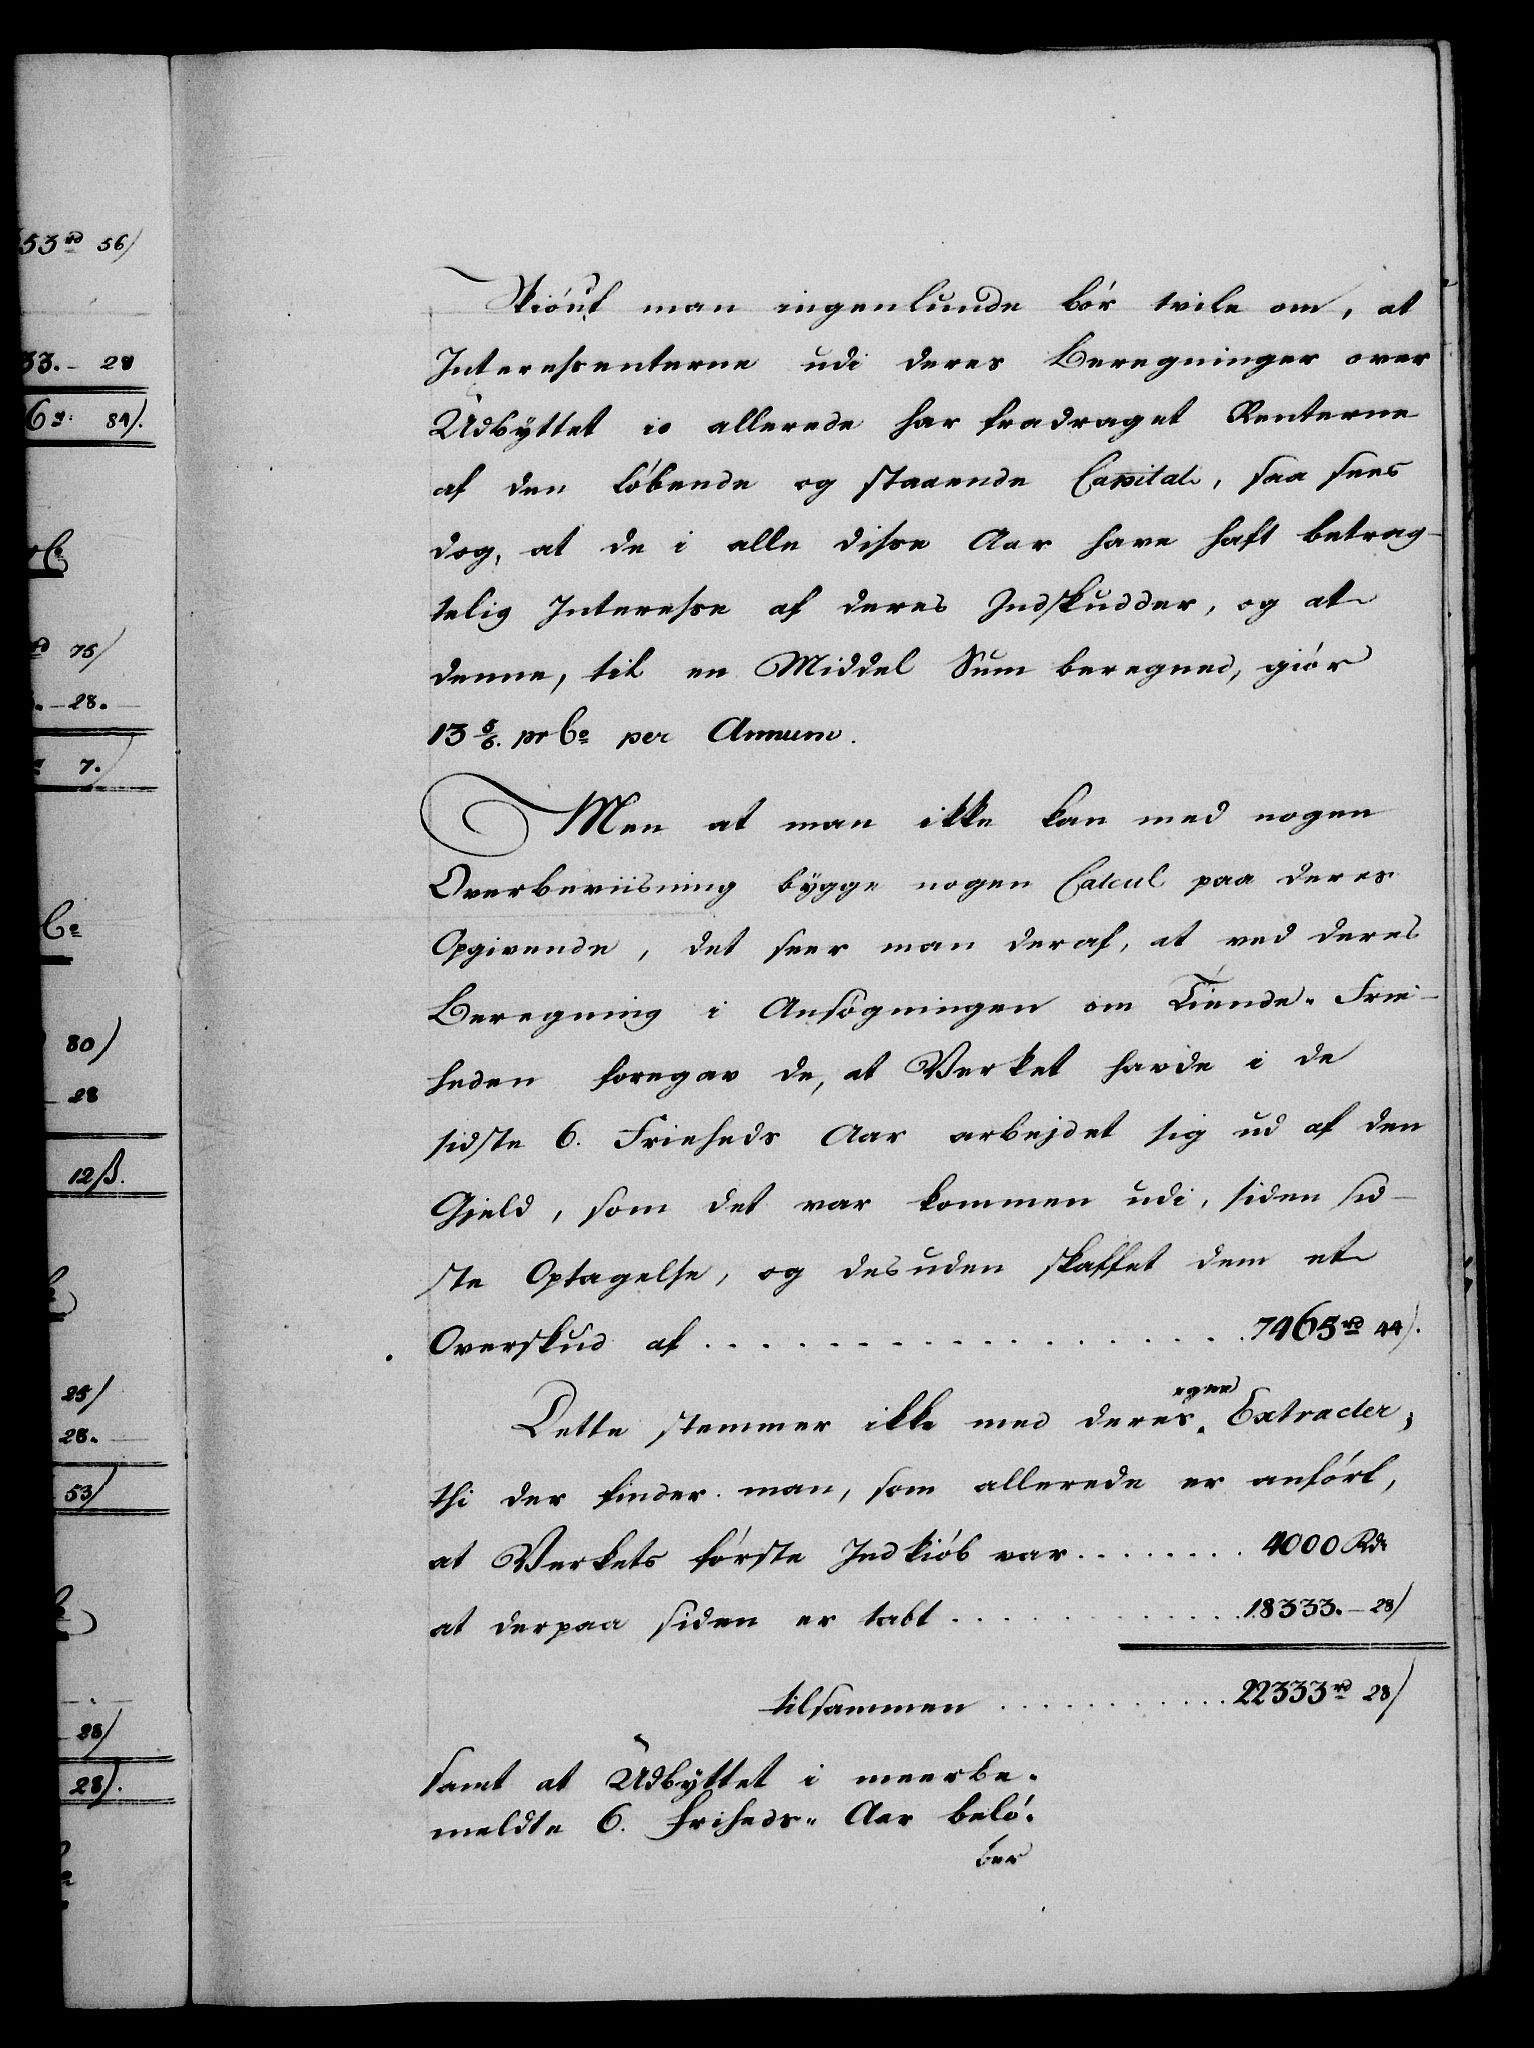 53rd 56/
33. - 28
6 84/.
75/
. - 28.
7.
80/
28
12ß.
25/
28.
53/
28/
28/.
Skiönt man ingenlunde bör tvile om, at
Interessenterne udi deres Beregninger over
Udbyttet io allerede har fradraget Renterne
af den löbende og staaende Capital, saa sees
dog, at de i alle disse Aar have haft betrag-
telig Interesse af deres Indskudder, og at
denne, til en Middel Sum beregned, giör
13 5/6. pr Co per Annum.
Men at man ikke kan med nogen
Overbeviisning bygge nogen Calcul paa deres
Opgivende, det seer man deraf, at ved deres
Beregning i Ansögningen om Tiende-Frie-
heden foregav de, at Verket havde i de
sidste 6. Frieheds Aar arbejdet sig ud af den
Gjeld, som det var kommen udi, siden sid-
ste Optagelse, og desuden skaffet dem et
Overskud af . . . . . . . . . . . . . . . . . 7465rd 44/.
Dette stemmer ikke med deres egne Extracter;
thi der finder man, som allerede er anfört,
at Verkets förste Indkiöb var . . . . . . . . 4000 Rd
at derpaa siden er tabt . . . . . . . . . . . . 18333. - 28/
tilsammen . . . . . . . . . . . 22333rd 28/
samt at Udbyttet i meerbe-
meldte 6. Friheds-Aar belö-
ber